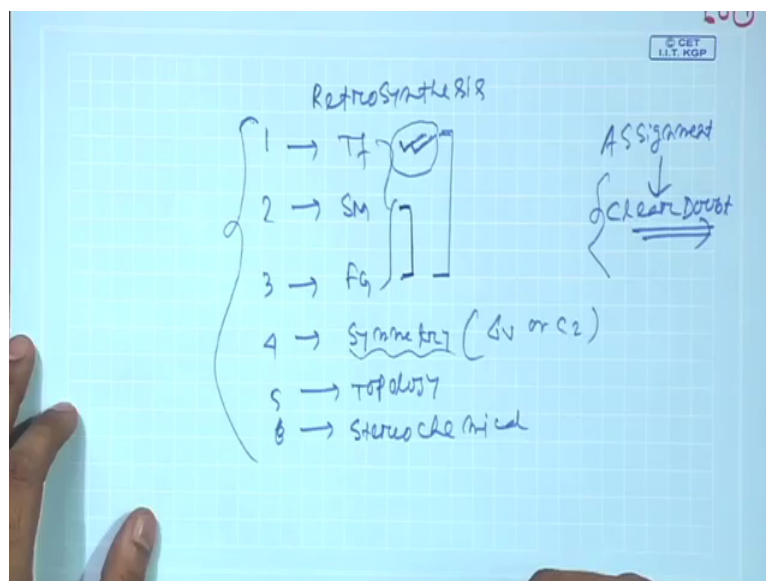 © CET
I.I.T. KGP
RetroSynthesis
1 → Tf
2 → SM
3 → FG
4 → Symmetry (σv or C2)
5 → Topology
6 → Stereochemical
Assignment
Clear Doubt